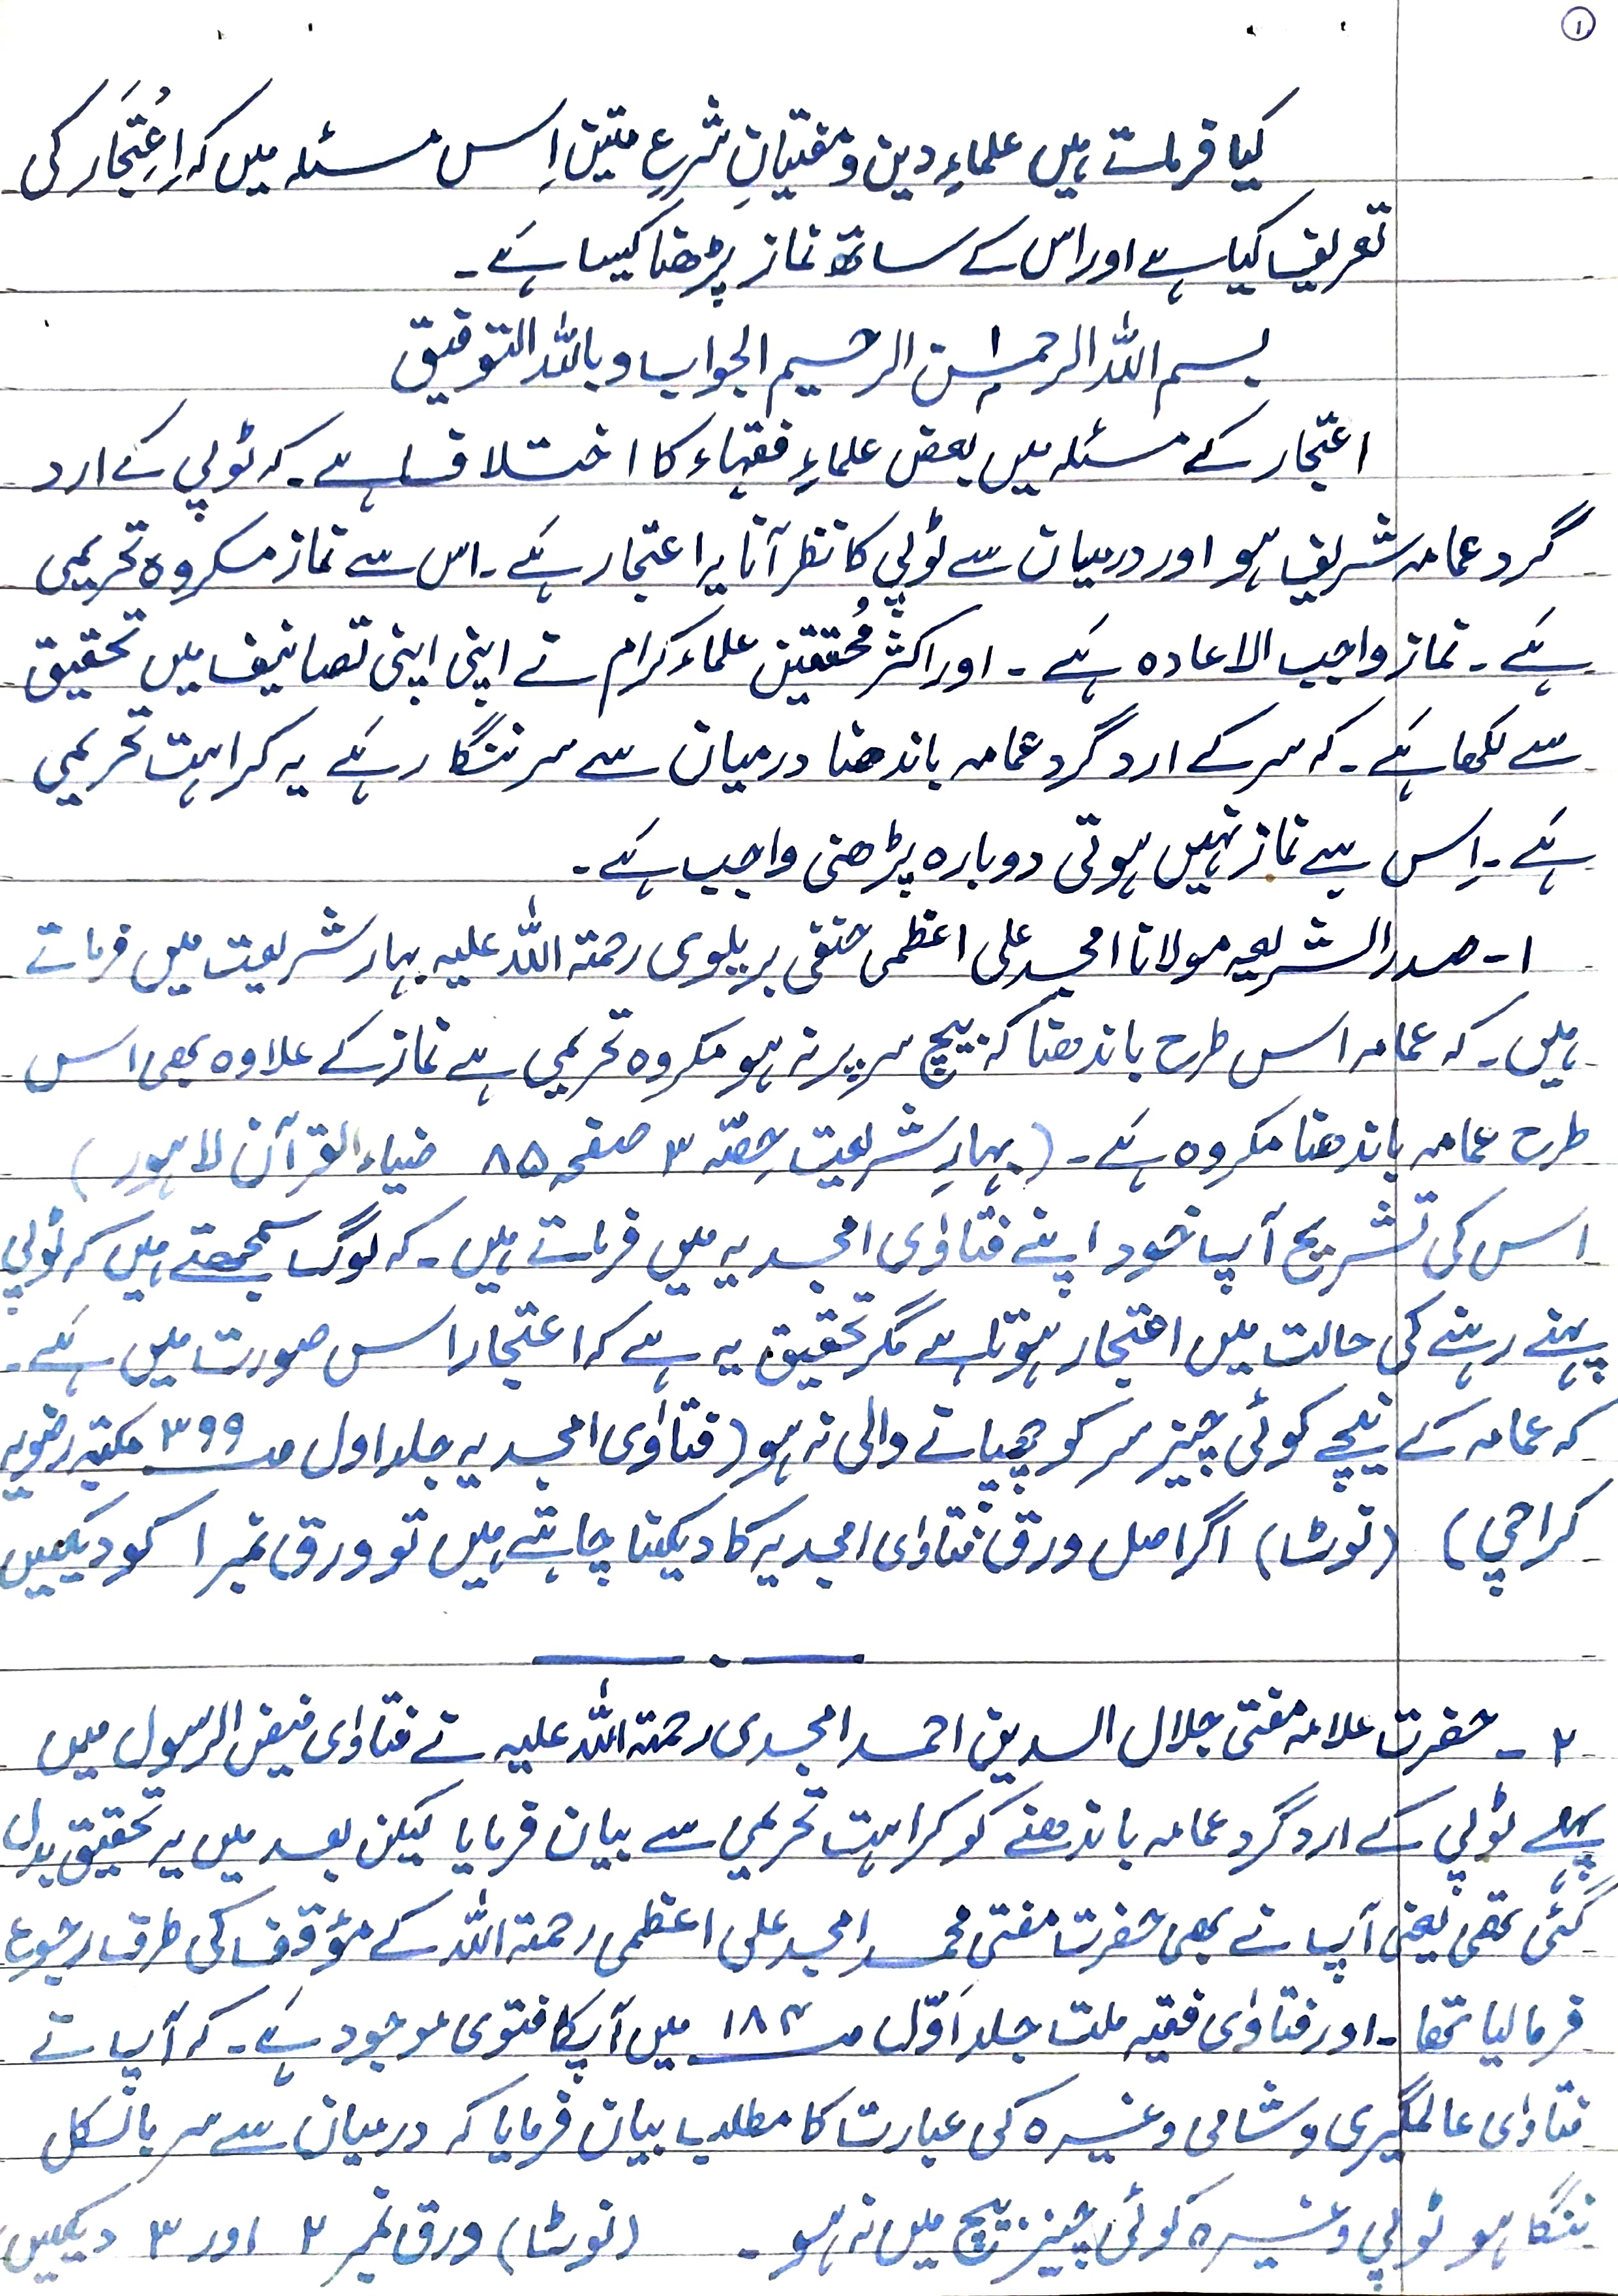 ۱
کیا فرماتے ہیں علماءِ دین و مفتیانِ شرع متین اِس مسئلہ میں کہ اِعْتِجَار کی
تعریف کیا ہے اور اس کے ساتھ نماز پڑھنا کیسا ہے۔
بسم اللہ الرحمٰن الرحیم الجواب وباللہ التوفیق
اعتجار کے مسئلہ میں بعض علماءِ فقہاء کا اختلاف ہے۔ کہ ٹوپی کے ارد
گرد عمامہ شریف ہو اور درمیان سے ٹوپی کا نظر آنا یہ اعتجار ہے۔ اس سے نماز مکروہ تحریمی
ہے۔ نماز واجب الاعادہ ہے۔ اور اکثر مُحققین علماء کرام نے اپنی اپنی تصانیف میں تحقیق
سے لکھا ہے۔ کہ سر کے ارد گرد عمامہ باندھنا درمیان سے سر ننگا رہے یہ کراہت تحریمی
ہے۔ اِس سے نماز نہیں ہوتی دوبارہ پڑھنی واجب ہے۔
۱۔ صدر الشریعہ مولانا امجد علی اعظمی حنفی بریلوی رحمتہ اللہ علیہ بہار شریعت میں فرماتے
ہیں۔ کہ عمامہ اس طرح باندھنا کہ بیچ سر پر نہ ہو مکروہ تحریمی ہے نماز کے علاوہ بھی اس
طرح عمامہ باندھنا مکروہ ہے۔ (بہارِ شریعت حِصّہ ۳ صفحہ ۸۵ ضیاء القرآن لاہور)
اس کی تشریح آپ خود اپنے فتاوٰی امجدیہ میں فرماتے ہیں۔ کہ لوگ سمجھتے ہیں کہ ٹوپی
پہنے رہنے کی حالت میں اعتجار ہوتا ہے مگر تحقیق یہ ہے کہ اعتجار اس صورت میں ہے۔
کہ عمامہ کے نیچے کوئی چیز سر کو چھپانے والی نہ ہو (فتاوٰی امجدیہ جلد اول صـ ۳۹۹ مکتبہ رضویہ
کراچی) (نوٹ) اگر اصل ورق فتاوٰی امجدیہ کا دیکنا چاہتے ہیں تو ورق نمبر ۱ کو دیکھیں
۲۔ حضرت علامہ مفتی جلال الدین احمد امجدی رحمتہ اللہ علیہ نے فتاوٰی فیض الرسول میں
پہلے ٹوپی کے ارد گرد عمامہ باندھنے کو کراہت تحریمی سے بیان فرمایا لیکن بعد میں یہ تحقیق بدل
گئی تھی یعنی آپ نے بھی حضرت مفتی محمد امجد علی اعظمی رحمتہ اللہ کے مؤقف کی طرف رجوع
فرما لیا تھا۔ اور فتاوٰی فقیہ ملت جلد اَوّل صـ ۱۸۴ میں آپکا فتوی موجود ہے۔ کہ آپ نے
فتاوٰی عالمگیری و شامی وغیرہ کی عبارت کا مطلب بیان فرمایا کہ درمیان سے سر بالکل
ننگا ہو ٹوپی وغیرہ کوئی چیز بیچ میں نہ ہو۔ (نوٹ) ورق نمبر ۲ اور ۳ دیکھیں